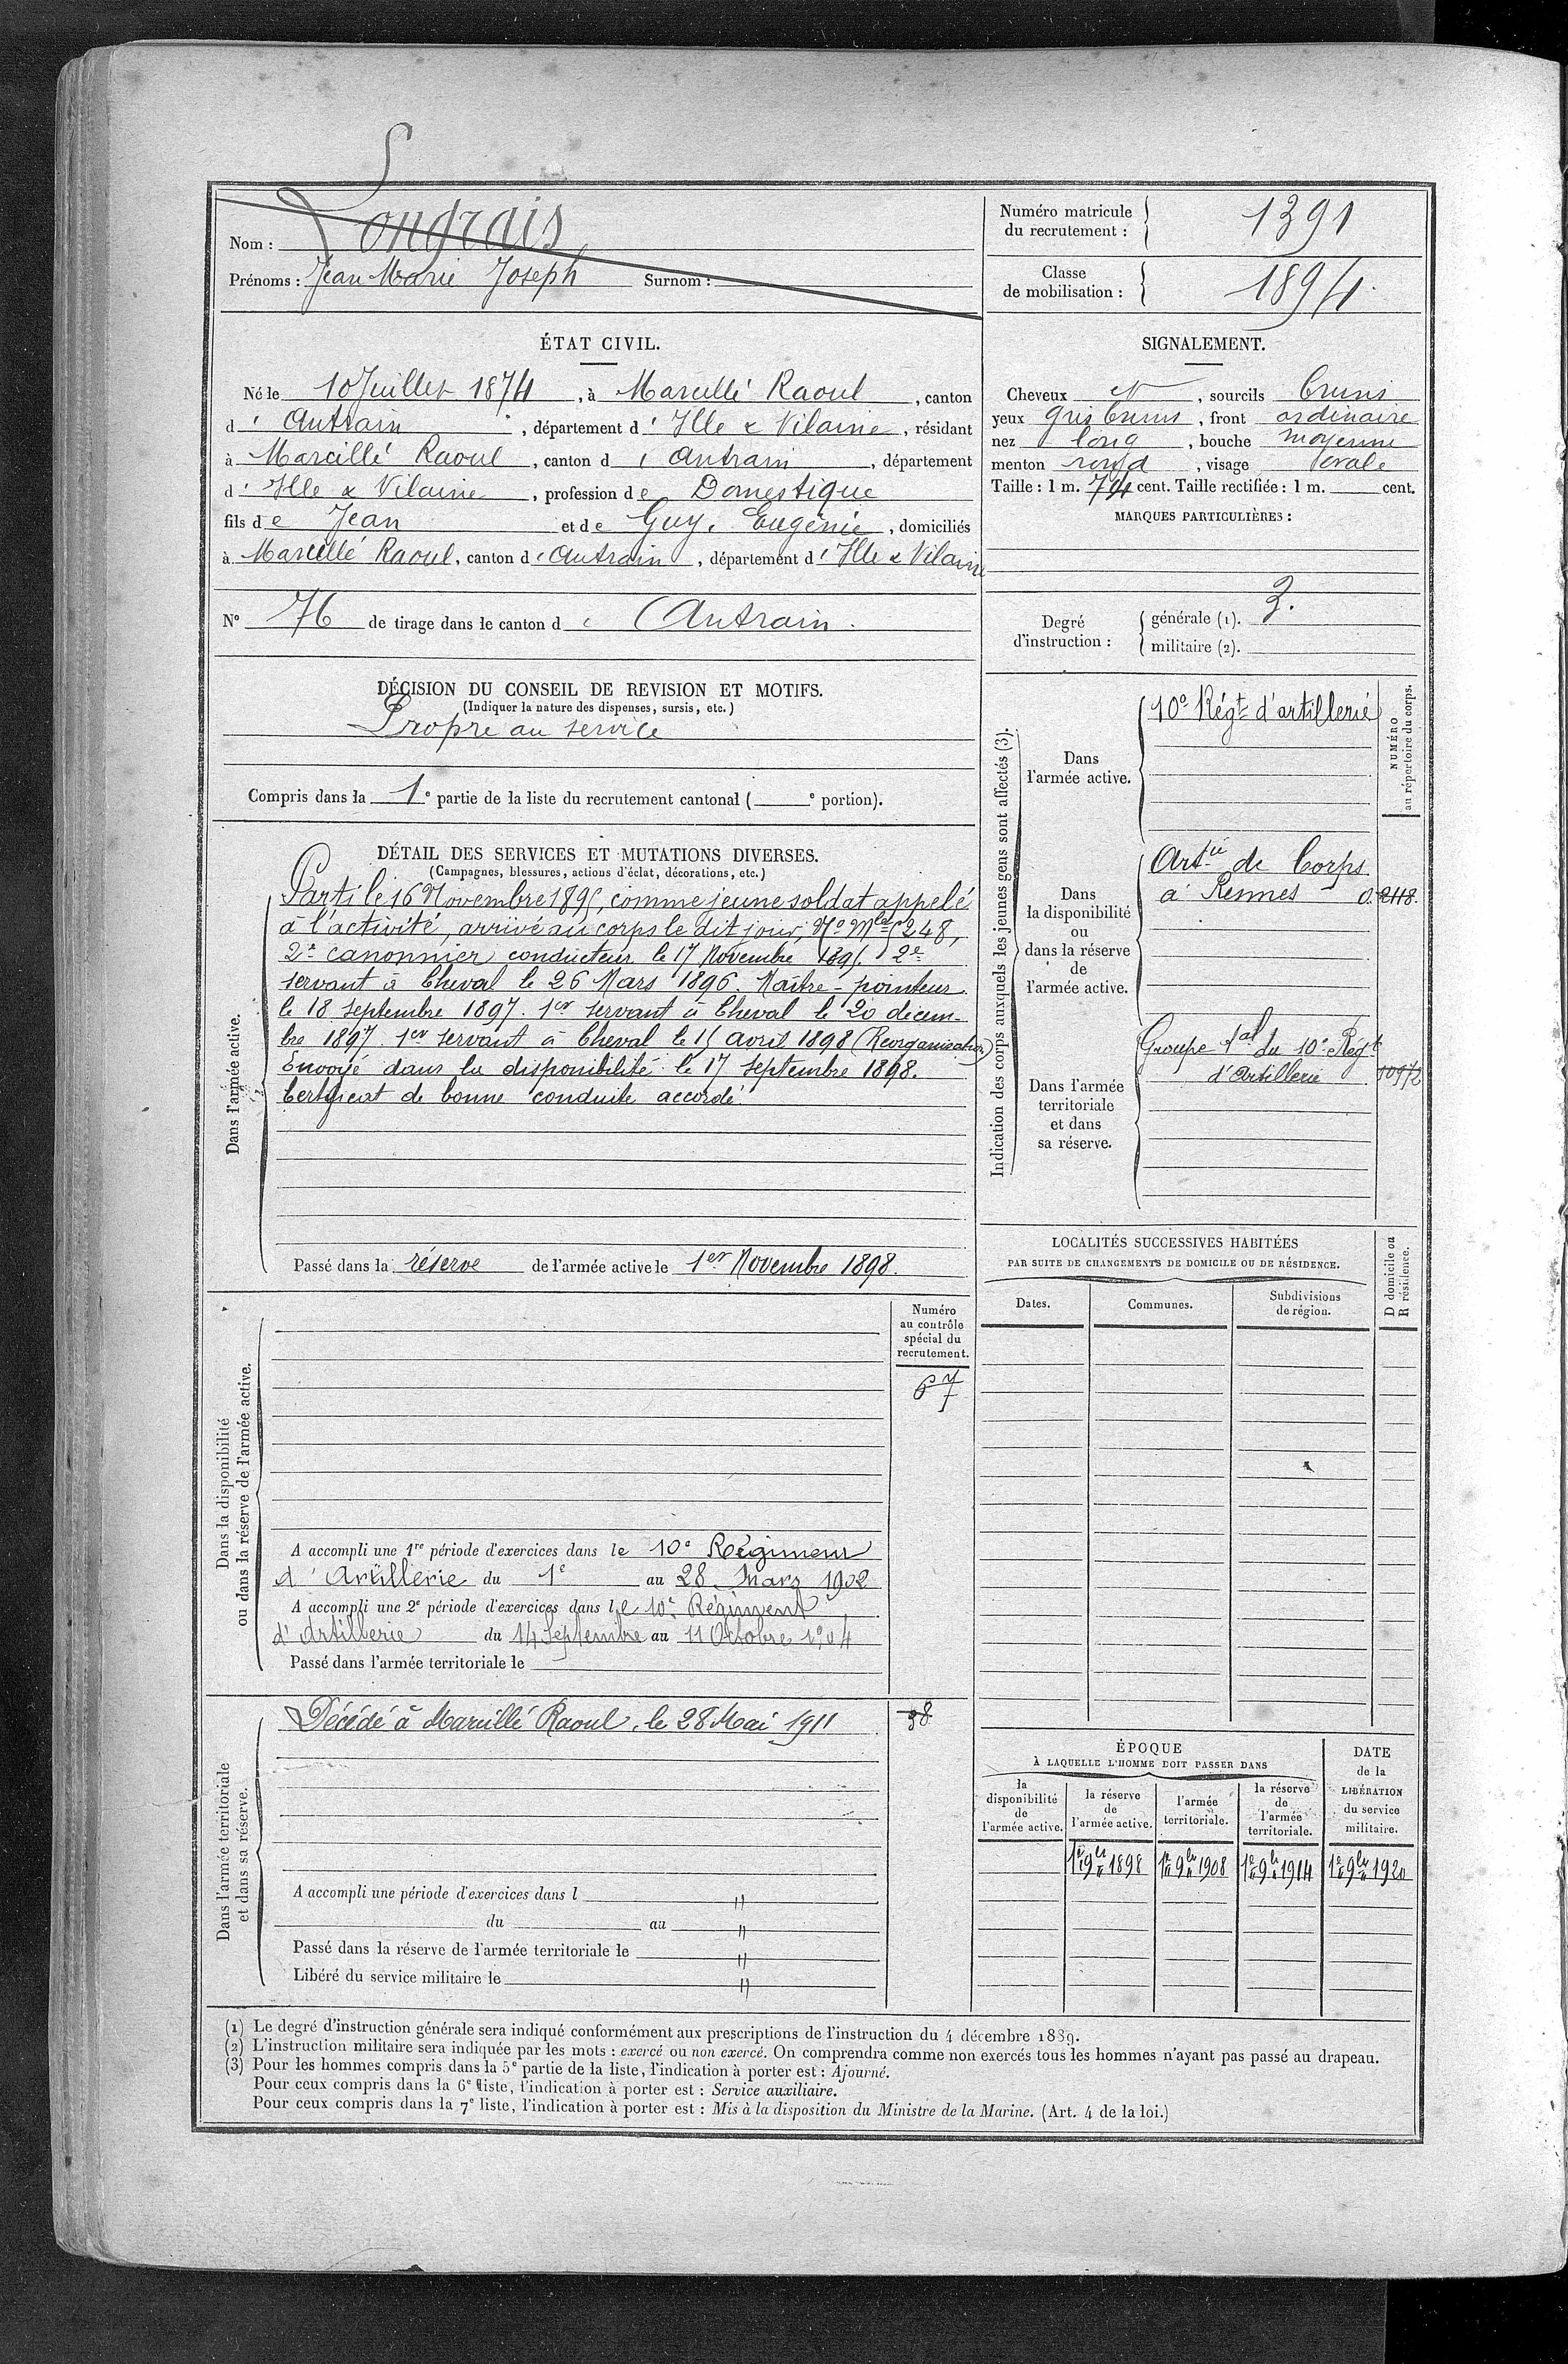 Nom : Longrais
Prénoms : Jean Marie Joseph Surnom :
Numéro matricule du recrutement : 1391
Classe de mobilisation : 1894
ÉTAT CIVIL.
Né le 10 Juillet 1874, à Marcillé Raoul, canton
d'Antrain, département d'Ille & Vilaine, résidant
à Marcillé Raoul, canton d'Antrain, département
d'Ille & Vilaine, profession de Domestique
fils de Jean et de Guy, Eugénie, domiciliés
à Marcillé Raoul, canton d'Antrain, département d'Ille & Vilaine
N° 76 de tirage dans le canton d'Antrain.
SIGNALEMENT.
Cheveux et, sourcils bruns
yeux gris bruns, front ordinaire
nez long, bouche moyenne
menton rond, visage ovale
Taille : 1 m. 74 cent. Taille rectifiée : 1 m. cent.
MARQUES PARTICULIÈRES :
Degré d'instruction :
générale (1). 3.
militaire (2).
DÉCISION DU CONSEIL DE REVISION ET MOTIFS.
(Indiquer la nature des dispenses, sursis, etc.)
Propre au service
Compris dans la 1e partie de la liste du recrutement cantonal ( e portion).
DÉTAIL DES SERVICES ET MUTATIONS DIVERSES.
(Campagnes, blessures, actions d'éclat, décorations, etc.)
Dans l'armée active.
Parti le 16 Novembre 1895, comme jeune soldat appelé
à l'activité, arrivé au corps le dit jour, No Mle 5248,
2e canonnier conducteur le 17 Novembre 1895. 2e
servant à Cheval le 26 Mars 1896. Maître-pointeur
le 18 septembre 1897. 1er servant à Cheval le 20 décem-
bre 1897. 1er servant à Cheval le 15 avril 1898 (Réorganisation)
Envoyé dans la disponibilité le 17 septembre 1898.
Certificat de bonne conduite accordé.
Passé dans la réserve de l'armée active le 1er Novembre 1898.
Indication des corps auxquels les jeunes gens sont affectés (3).
NUMÉRO au répertoire du corps.
Dans l'armée active.
10e Régt d'artillerie
Dans la disponibilité ou dans la réserve de l'armée active.
Artie de Corps
à Rennes 0.2118.
Dans l'armée territoriale et dans sa réserve.
Groupe tal du 10e Régt
d'Artillerie
LOCALITÉS SUCCESSIVES HABITÉES
PAR SUITE DE CHANGEMENTS DE DOMICILE OU DE RÉSIDENCE.
Dates. Communes. Subdivisions de région. D domicile ou R résidence.
Dans la disponibilité ou dans la réserve de l'armée active.
Numéro au contrôle spécial du recrutement.
67
A accompli une 1re période d'exercices dans le 10e Régiment
d'Artillerie du 1e au 28 Mars 1902
A accompli une 2e période d'exercices dans le 10e Régiment
d'Artillerie du 14 Septembre au 11 Octobre 1904
Passé dans l'armée territoriale le
Dans l'armée territoriale et dans sa réserve.
Décédé à Marcillé Raoul, le 28 Mai 1911
38
A accompli une période d'exercices dans l "
du au "
Passé dans la réserve de l'armée territoriale le "
Libéré du service militaire le "
ÉPOQUE
À LAQUELLE L'HOMME DOIT PASSER DANS
la disponibilité de l'armée active.
la réserve de l'armée active.
l'armée territoriale.
la réserve de l'armée territoriale.
DATE de la LIBÉRATION du service militaire.
1er 9bre 1898 1er 9bre 1908 1er 9bre 1914 1er 9bre 1920
(1) Le degré d'instruction générale sera indiqué conformément aux prescriptions de l'instruction du 4 décembre 1889.
(2) L'instruction militaire sera indiquée par les mots : exercé ou non exercé. On comprendra comme non exercés tous les hommes n'ayant pas passé au drapeau.
(3) Pour les hommes compris dans la 5e partie de la liste, l'indication à porter est : Ajourné.
Pour ceux compris dans la 6e liste, l'indication à porter est : Service auxiliaire.
Pour ceux compris dans la 7e liste, l'indication à porter est : Mis à la disposition du Ministre de la Marine. (Art. 4 de la loi.)